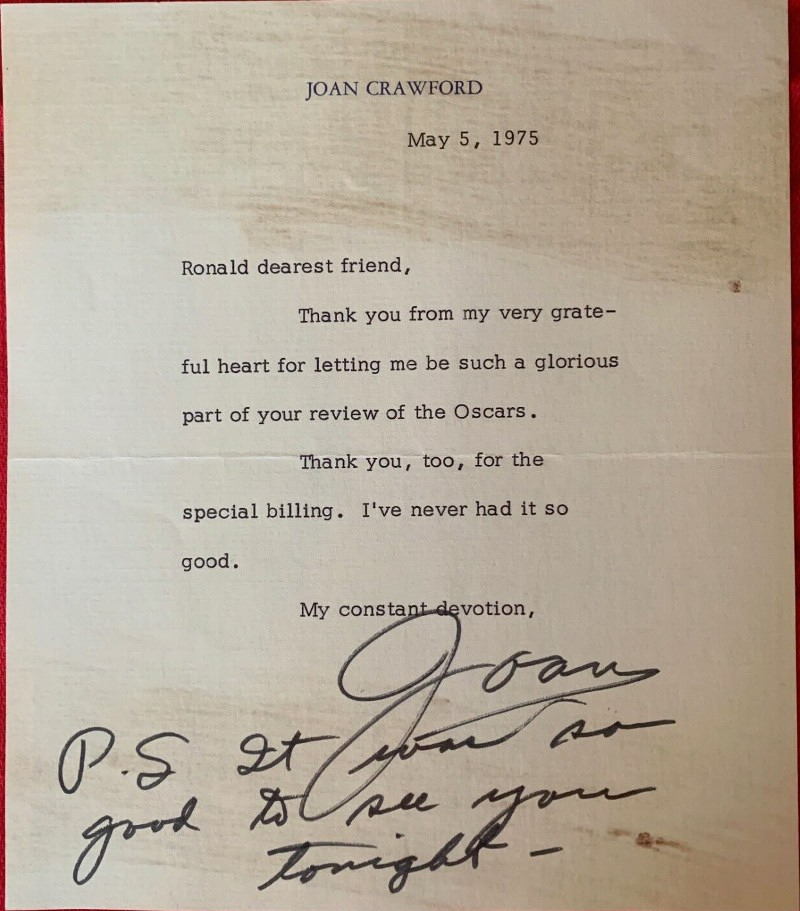 JOAN CRAWFORD
May 5, 1975
Ronald dearest friend,
Thank you from my very grate-
ful heart for letting me be such a glorious
part of your review of the Oscars.
Thank you, too, for the
special billing. I've never had it so
good.
My constant devotion,
Joan
P.S It was so
good to see you
tonight -